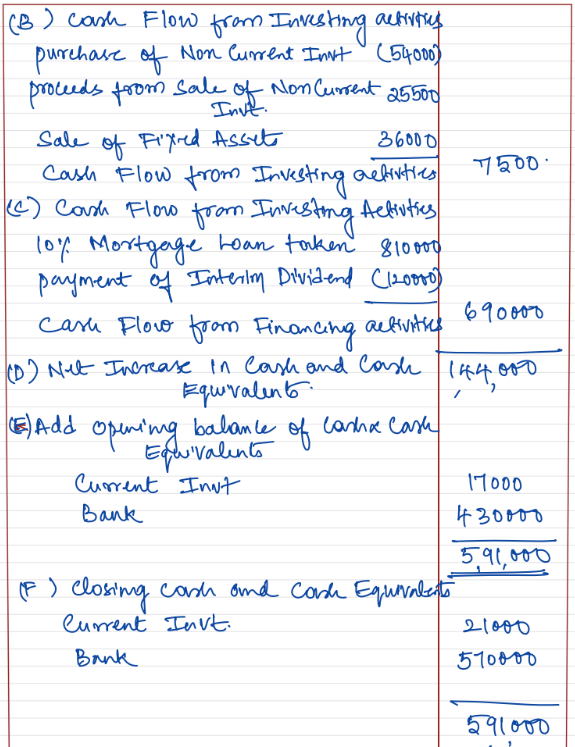 (B) Cash Flow from Investing activities
purchase of Non Current Invt (54000)
proceeds from Sale of Non Current 25500
Invt.
Sale of Fixed Assets 36000
Cash Flow from Investing activities 7500.
(C) Cash Flow from Investing Activities
10% Mortgage Loan taken 810000
payment of Interim Dividend (120000)
Cash Flow from Financing activities 690000
(D) Net Increase in Cash and Cash 144,000
Equivalents.
(E) Add opening balance of Cash & Cash
Equivalents
Current Invt 17000
Bank 430000
5,91,000
(F) Closing Cash and Cash Equivalents
Current Invt. 21000
Bank 570000
591000